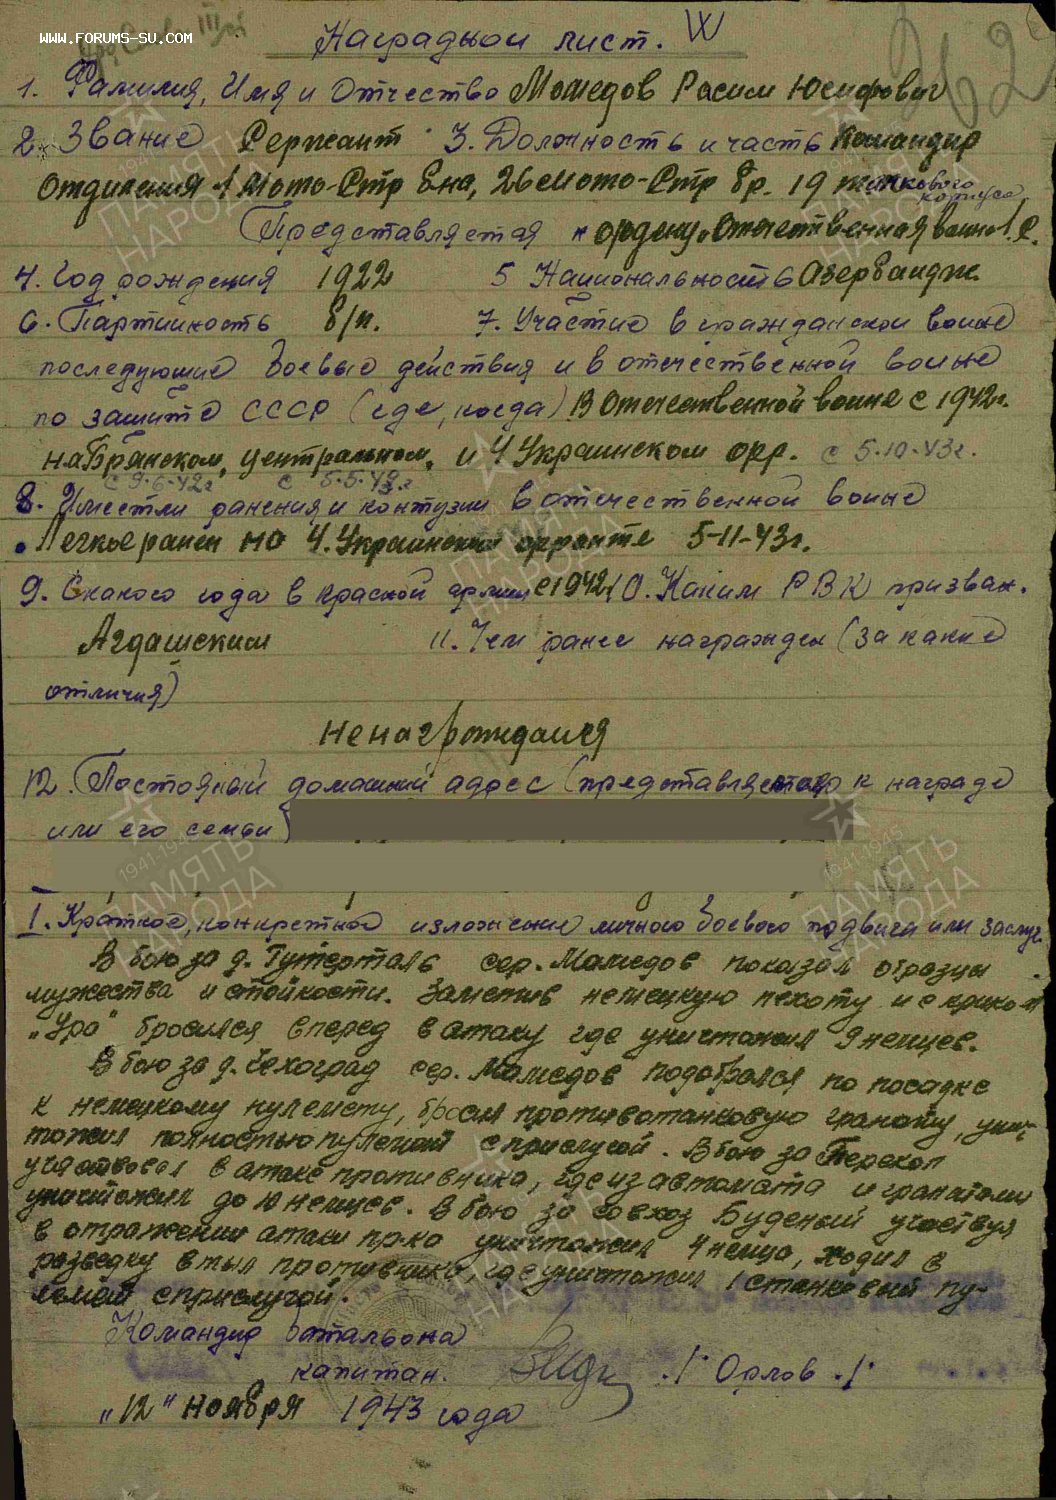 WWW.FORUMS-SU.COM
Наградной лист.
1. Фамилия, Имя и Отчество Мамедов Расим Юсифович
2. Звание Сержант 3. Должность и часть Командир
Отделения 1 Мото-Стр Бна, 26 Мото-Стр бр. 19 танкового
корпуса
Представляется к ордену "Отечественная война I. С.
4. Год рождения 1922 5 Национальность Азербайдж.
6. Партийность б/п. 7. Участие в гражданской войне
последующие боевые действия и в отечественной войне
по защите СССР (где, когда) В Отечественной войне с 1942г.
на Брянском, центральном, и 4 Украинском фр. с 5.10.43г.
с 9.6.42г с 5.5.43г
8. Имеет ли ранения и контузии в отечественной войне
Легко ранен на 4. Украинском фронте 5-11-43г.
9. С какого года в красной армии с 1942 10. Каким РВК призван.
Агдашским 11. Чем ранее награжден (за какие
отличия)
Не награждался
12. Постояный домашний адрес (представляемого к награде
или его семьи
I. Краткое, конкретное изложение личного боевого подвига или заслуг.
В бою за д. Гутерталь сер. Мамедов показал образцы
мужества и стойкости. Заметив немецкую пехоту и с криком
"Ура" бросился вперед в атаку где уничтожил 9 немцев.
В бою за д. Чехоград сер. Мамедов подобрался по посадке
к немецкому пулемету, бросил противотанковую гранату, унич-
тожил полностью пулемет с прислугой. В бою за Перекоп
участвовал в атаке противника, где из автомата и гранатами
уничтожил до 10 немцев. В бою за совхоз Буденый участвуя
в отражении атаки пр-ка уничтожил 4 немца, ходил в
разведку в тыл противника, где уничтожил 1 станковый пу-
лемет с прислугой.
Командир батальона
капитан. /. Орлов ./
"12" ноября 1943 года
ПАМЯТЬ НАРОДА
1941-1945